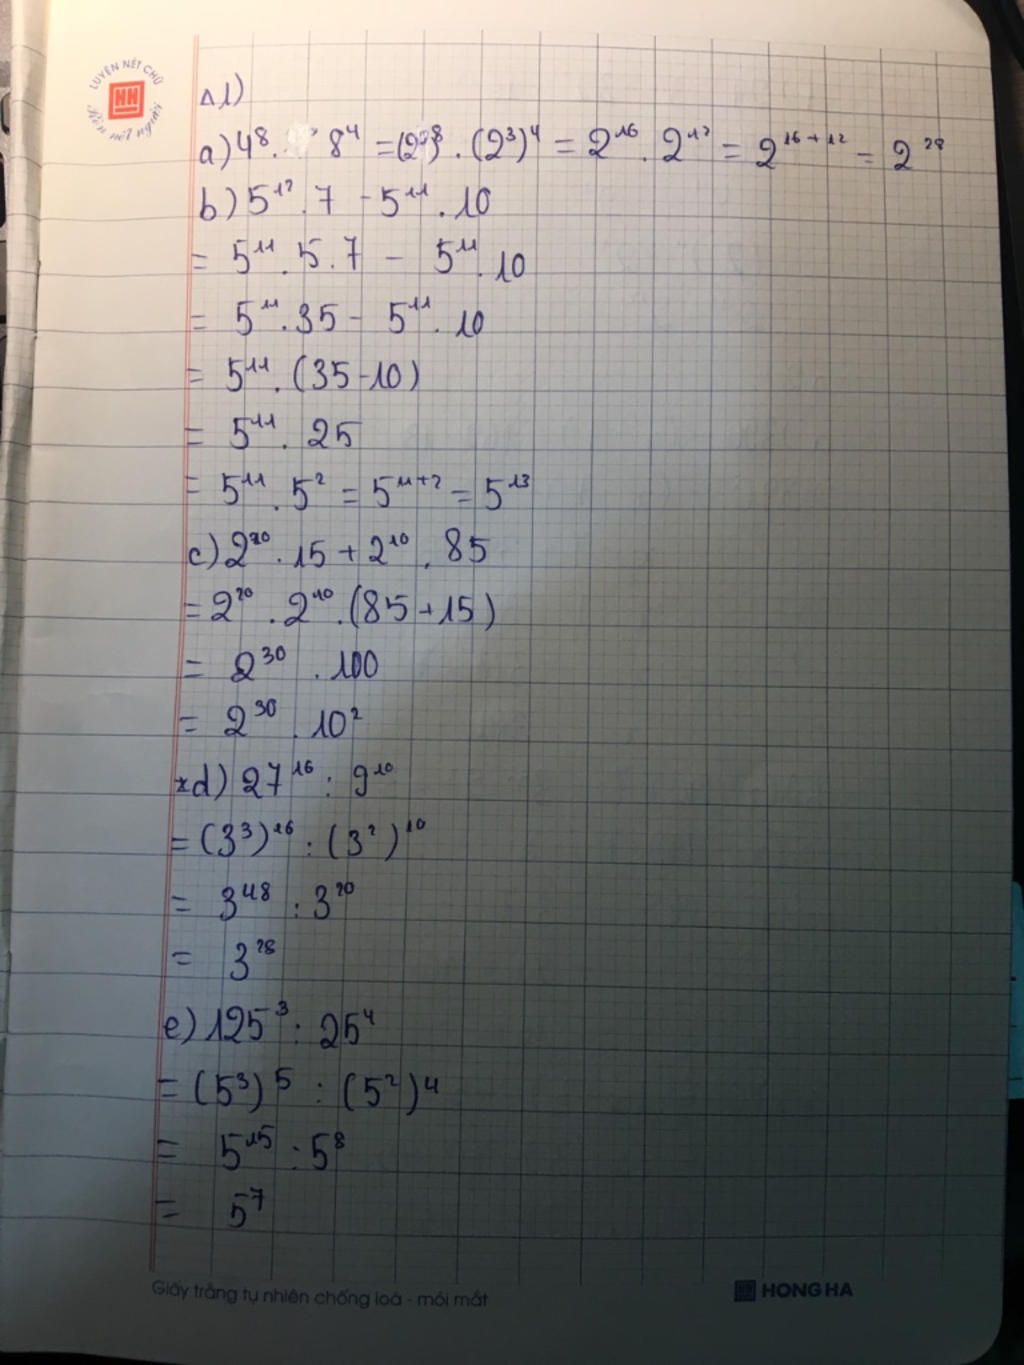 LUYỆN NÉT CHỮ
HH
Rèn nết người
1)
a) 4⁸ . 8⁴ = (2²)⁸ . (2³)⁴ = 2¹⁶ . 2¹² = 2¹⁶⁺¹² = 2²⁸
b) 5¹² . 7 - 5¹¹ . 10
= 5¹¹ . 5 . 7 - 5¹¹ . 10
= 5¹¹ . 35 - 5¹¹ . 10
= 5¹¹ . (35 - 10)
= 5¹¹ . 25
= 5¹¹ . 5² = 5¹¹⁺² = 5¹³
c) 2²⁰ . 15 + 2¹⁰ . 85
= 2²⁰ . 2¹⁰ . (85 + 15)
= 2³⁰ . 100
= 2³⁰ . 10²
*d) 27¹⁶ : 9¹⁰
= (3³)¹⁶ : (3²)¹⁰
= 3⁴⁸ : 3²⁰
= 3²⁸
e) 125³ : 25⁴
= (5³)⁵ : (5²)⁴
= 5¹⁵ : 5⁸
= 5⁷
Giấy trắng tự nhiên chống loá - mỏi mắt
HONG HA